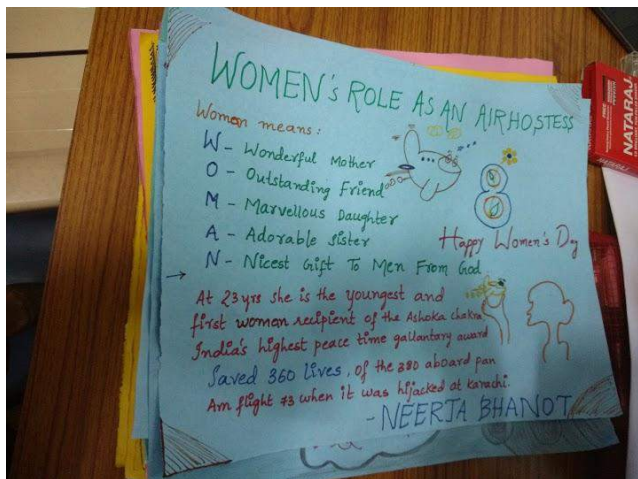 WOMEN's ROLE AS AN AIRHOSTESS
Woman means:
W - Wonderful Mother
O - Outstanding Friend
M - Marvellous Daughter
A - Adorable Sister
N - Nicest Gift To Men From God
8
Happy Women's Day
→ At 23 yrs she is the youngest and
first women recipient of the Ashoka chakra
India's highest peace time gallantary award
Saved 360 lives, of the 380 aboard pan
Am flight 73 when it was hijacked at Karachi.
- NEERJA BHANOT
NATARAJ